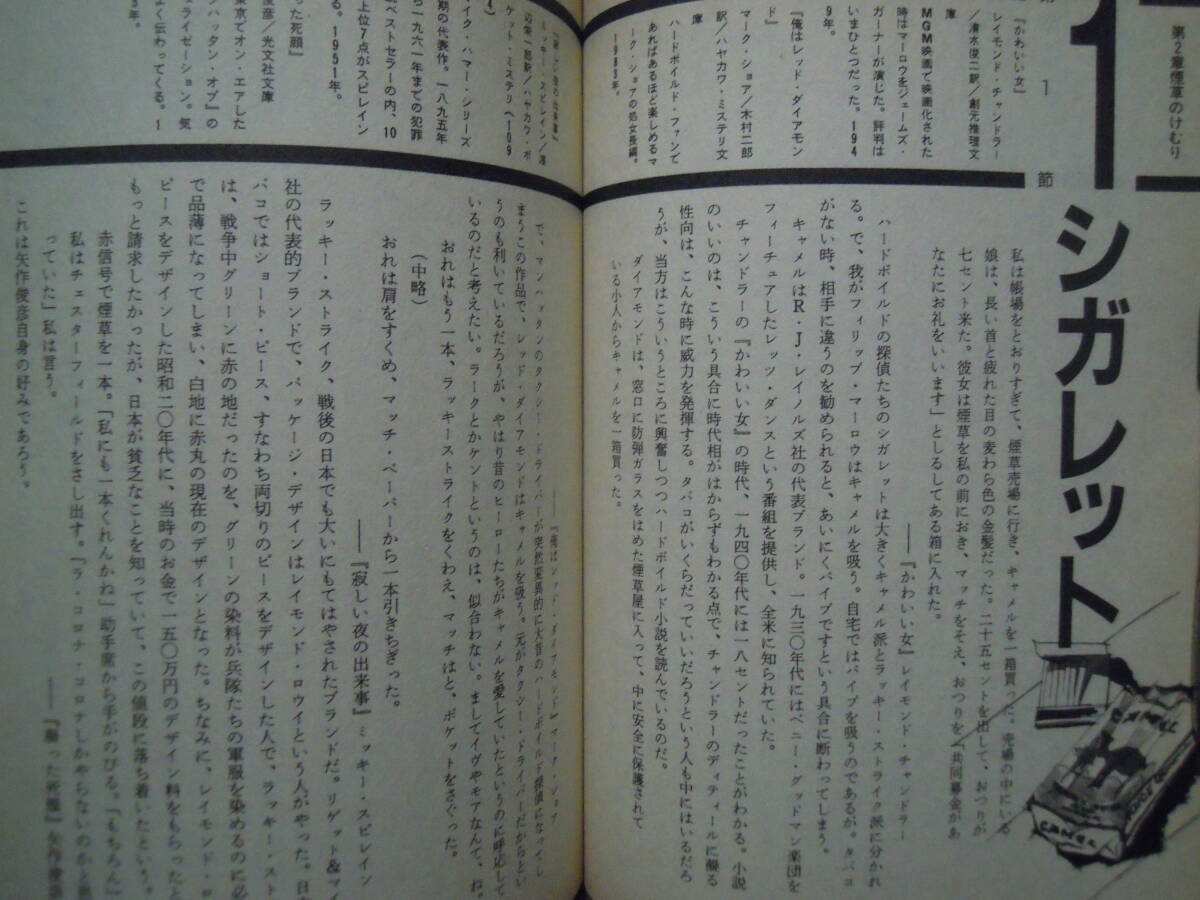 第2章煙草のけむり
第
1
節
1
シガレット
『かわいい女』
レイモンド・チャンドラー
/清水俊二訳/創元推理文
庫
MGM映画で映画化された
時はマーロウをジェームズ・
ガーナーが演じた。評判は
いまひとつだった。194
9年。
『俺はレッド・ダイアモン
ド』
マーク・ショア/木村二郎
訳/ハヤカワ・ミステリ文
庫
ハードボイルド・ファンで
あればあるほど楽しめるマ
ーク・ショアの処女長編。
1983年。
私は帳場をとおりすぎて、煙草売場に行き、キャメルを一箱買った。売場の中にいる
娘は、長い首と疲れた目の麦わら色の金髪だった。二十五セントを出して、おつりが
七セント来た。彼女は煙草を私の前におき、マッチをそえ、おつりを「共同募金があ
なたにお礼をいいます」としるしてある箱に入れた。
――『かわいい女』レイモンド・チャンドラー
ハードボイルドの探偵たちのシガレットは大きくキャメル派とラッキー・ストライク派に分かれ
る。で、我がフィリップ・マーロウはキャメルを吸う。自宅ではパイプを吸うのであるが、タバコ
がない時、相手に違うのを勧められると、あいにくパイプですという具合に断わってしまう。
キャメルはR・J・レイノルズ社の代表ブランド。一九三〇年代にはベニー・グッドマン楽団を
フィーチュアしたレッツ・ダンスという番組を提供し、全米に知られていた。
チャンドラーの『かわいい女』の時代、一九四〇年代には一八セントだったことがわかる。小説
のいいのは、こういう具合に時代相がはからずもわかる点で、チャンドラーのディティールに凝る
性向は、こんな時に威力を発揮する。タバコがいくらだっていいだろうという人も中にはいるだろ
うが、当方はこういうところに興奮しつつハードボイルド小説を読んでいるのだ。
ダイアモンドは、窓口に防弾ガラスをはめた煙草屋に入って、中に安全に保護されて
いる小人からキャメルを一箱買った。
――『俺はレッド・ダイアモンド』マーク・ショア
で、マンハッタンのタクシー・ドライバーが突然変異的に大昔のハードボイルド探偵になってし
まうこの作品で、レッド・ダイアモンドはキャメルを吸う。元がタクシー・ドライバーだからとい
うのも利いているだろうが、やはり昔のヒーローたちがキャメルを愛していたというのに呼応して
いるのだと考えたい。ラークとかケントというのは、似合わない。ましてイヴやモアなんて、ね。
おれはもう一本、ラッキーストライクをくわえ、マッチはと、ポケットをさぐった。
(中略)
おれは肩をすくめ、マッチ・ペーパーから一本引きちぎった。
――『寂しい夜の出来事』ミッキー・スピレイン
ラッキー・ストライク、戦後の日本でも大いにもてはやされたブランドだ。リゲット&マイ
社の代表的ブランドで、パッケージ・デザインはレイモンド・ロウイという人がやった。日本
バコではショート・ピース、すなわち両切りのピースをデザインした人で、ラッキー・スト
は、戦争中グリーンに赤の地だったのを、グリーンの染料が兵隊たちの軍服を染めるのに必
で品薄になってしまい、白地に赤丸の現在のデザインとなった。ちなみに、レイモンド・ロ
ピースをデザインした昭和二〇年代に、当時のお金で一五〇万円のデザイン料をもらったと
もっと請求したかったが、日本が貧乏なことを知っていて、この値段に落ち着いたという。
赤信号で煙草を一本。「私にも一本くれんかね」助手席から手がのびる。「もちろん」
私はチェスターフィールドをさし出す。「ラ・コロナ・コロナしかやらないのかと
っていた」私は言う。
これは矢作俊彦自身の好みであろう。
4)
イク・ハマー・シリーズ
期の代表作。一八九五年
ら一九六一年までの犯罪
ベストセラーの内、10
上位7点がスピレイン
る。1951年。
った死顔』
俊彦/光文社文庫
東京でオン・エアした
ハッタン・オプ』の
ライゼーション。気
よく伝わってくる。1
CAMEL
CAMEL